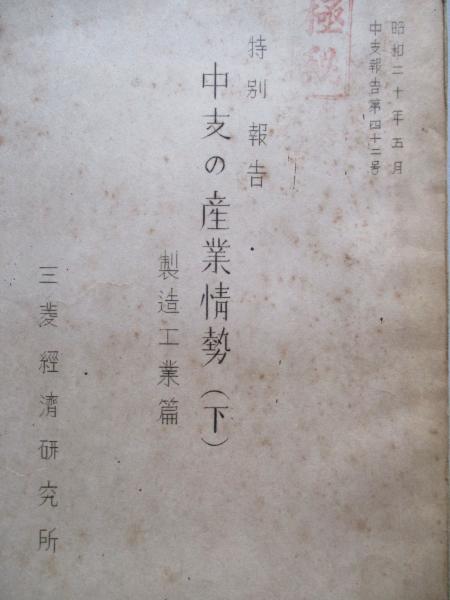 極秘
昭和二十年五月
中支報告第四十二号
特別報告
中支の産業情勢（下）
製造工業篇
三菱經濟研究所